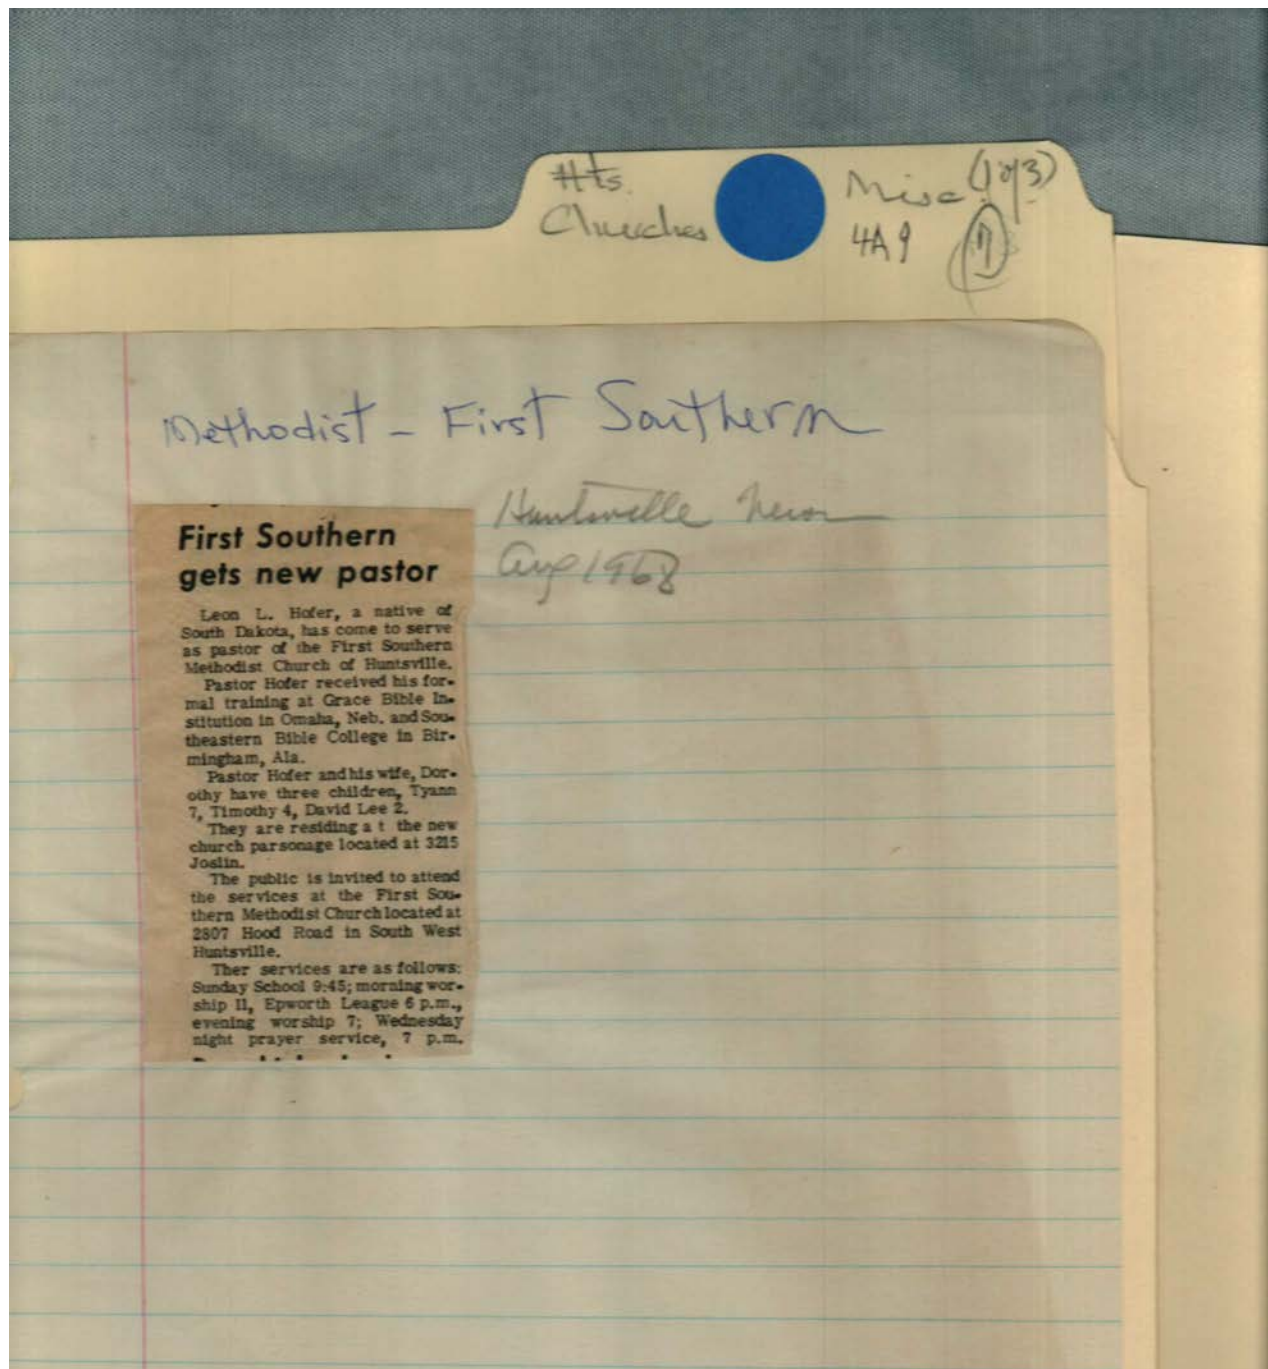 Hts.
Churches
Misc (1 of 3)
4A9
Methodist - First Southern
Huntsville News
Aug 1968
First Southern
gets new pastor
Leon L. Hofer, a native of
South Dakota, has come to serve
as pastor of the First Southern
Methodist Church of Huntsville.
Pastor Hofer received his for-
mal training at Grace Bible In-
stitution in Omaha, Neb. and Sou-
theastern Bible College in Bir-
mingham, Ala.
Pastor Hofer and his wife, Dor-
othy have three children, Tyann
7, Timothy 4, David Lee 2.
They are residing a t the new
church parsonage located at 3215
Joslin.
The public is invited to attend
the services at the First Sou-
thern Methodist Church located at
2807 Hood Road in South West
Huntsville.
Ther services are as follows:
Sunday School 9:45; morning wor-
ship 11, Epworth League 6 p.m.,
evening worship 7; Wednesday
night prayer service, 7 p.m.